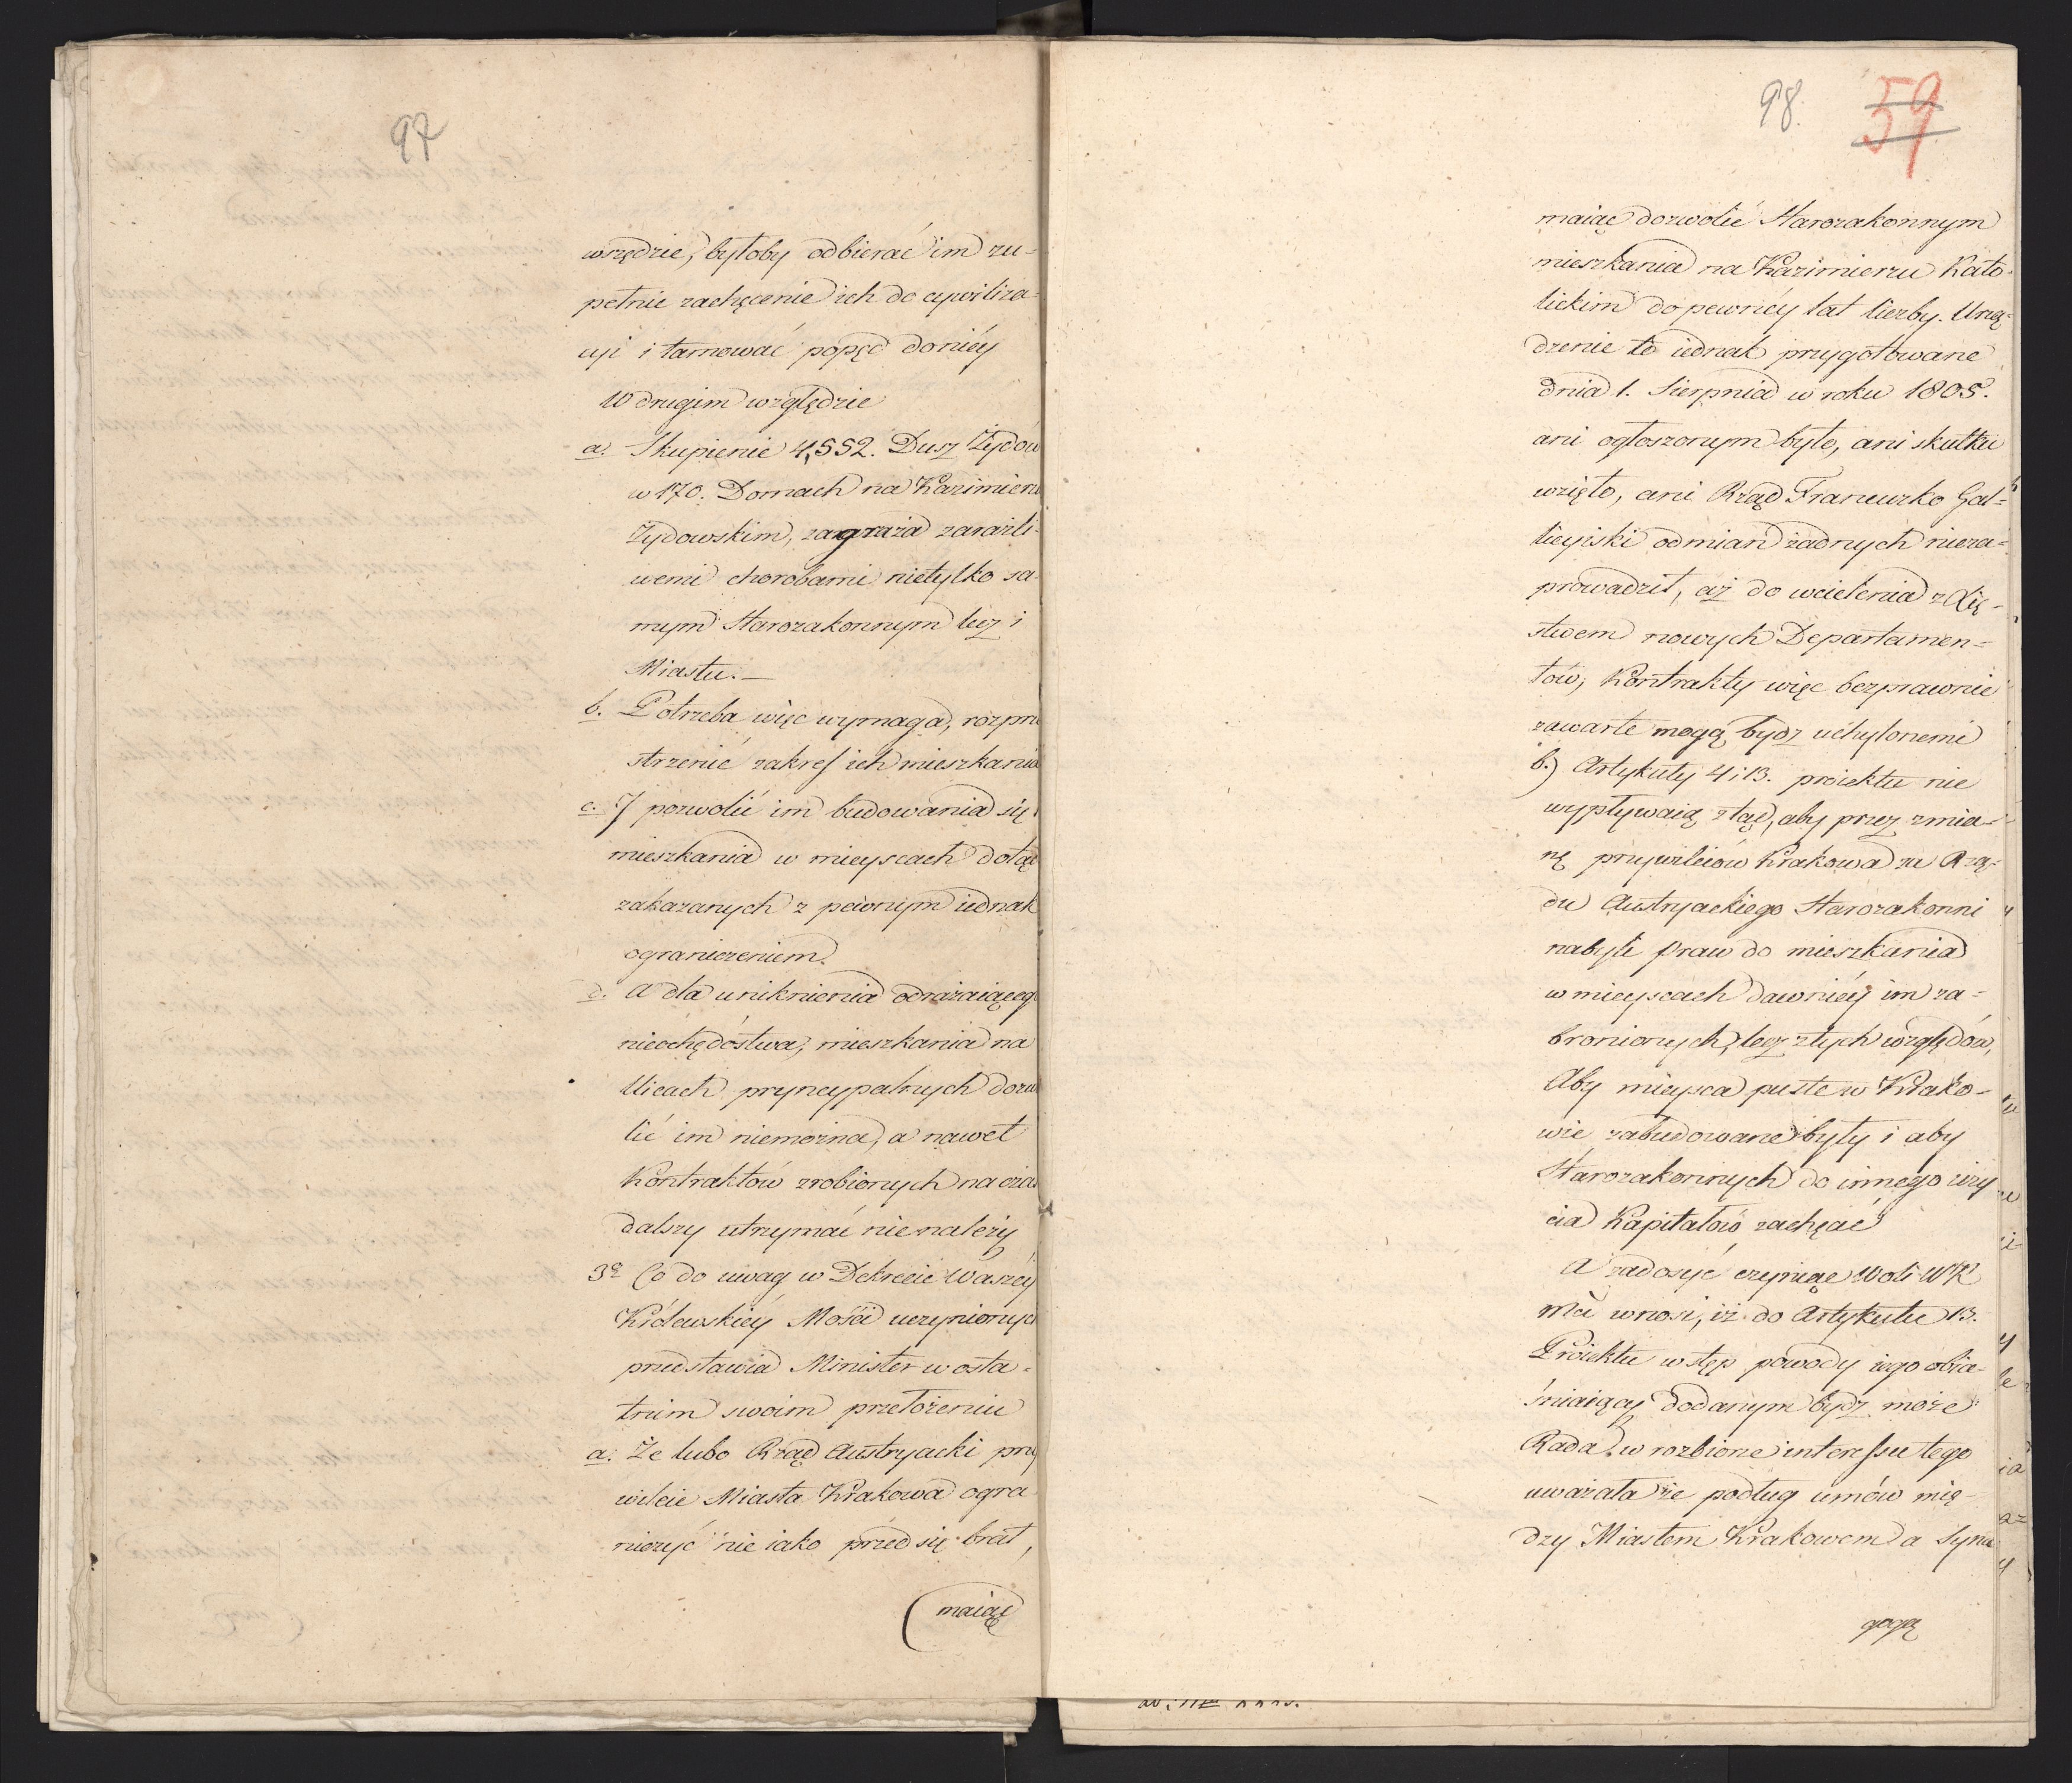 97
wszędzie, byłoby odbierać im zu-
pełnie zachęcenie ich do cywiliza-
cyi i tamować popęd do niéy
W drugim względzie
a. Skupienie 4,552. Dusz Żydów
w 170. Domach na Kazimierzu
Żydowskim, zagraża zaraźli-
wemi chorobami nietylko sa-
mym Starozakonnym lecz i
Miastu.—
b. Potrzeba więc wymaga, rozprze
strzenić zakres ich mieszkania
c. J pozwolić im budowania się i
mieszkania w mieyscach dotąd
zakazanych z pewnym iednak
ograniczeniem.
d. a dla uniknienia odrażaiącego
niechędóstwa, mieszkania na
Ulicach pryncypalnych dozwo
lić im niemożna, a nawet
Kontraktów zrobionych na czas
dalszy utrzymać nie należy
3e Co do uwag w Dekrecie Waszéy
Królewskiéy Mości uczynionych
przedstawia Minister w osta-
tnim swoim przełożeniu
a. Że lubo Rząd Austryacki przy
wileie Miasta Krakowa ogra
niczyć nie iako przed się brał,
(maiąc
98. 59
maiąc dozwolić Starozakonnym
mieszkania na Kazimierzu Kato-
lickim do pewnéy lat liczby. Urzą-
dzenie to iednak przygotowane
dnia 1. Sierpnia w roku 1805.
ani ogłoszonym było, ani skutku
wzięło, ani Rząd Francuzko Gal-
licyiski odmian żadnych nieza-
prowadził, aż do wcielenia z Xię-
stwem nowych Departamen-
tów; Kontrakty więc bezprawnie
zawarte mogą bydz uchylonemi
b.) Artykuły 4 i 13. proiektu nie
wypływaią ztąd, aby przez zmia-
nę przywileiów Krakowa za Rzą-
du Austryackiego Starozakonni
nabyli praw do mieszkania
w mieyscach dawniéy im za-
bronionych, lecz z tych względów,
Aby mieysca puste w Krako-
wie zabudowane były i aby
Starozakonnych do innego uży
cia Kapitałów zachęcać
A zadosyć czyniąc Woli WK
Mci wnosi, iż do Artykułu 13.
Proiektu wstęp powody iego obia-
śniaiący dodanym bydz może
Rada w rozbiorze interessu tego
uważała że podług umów mię-
dzy Miastem Krakowem a Syna
gogą